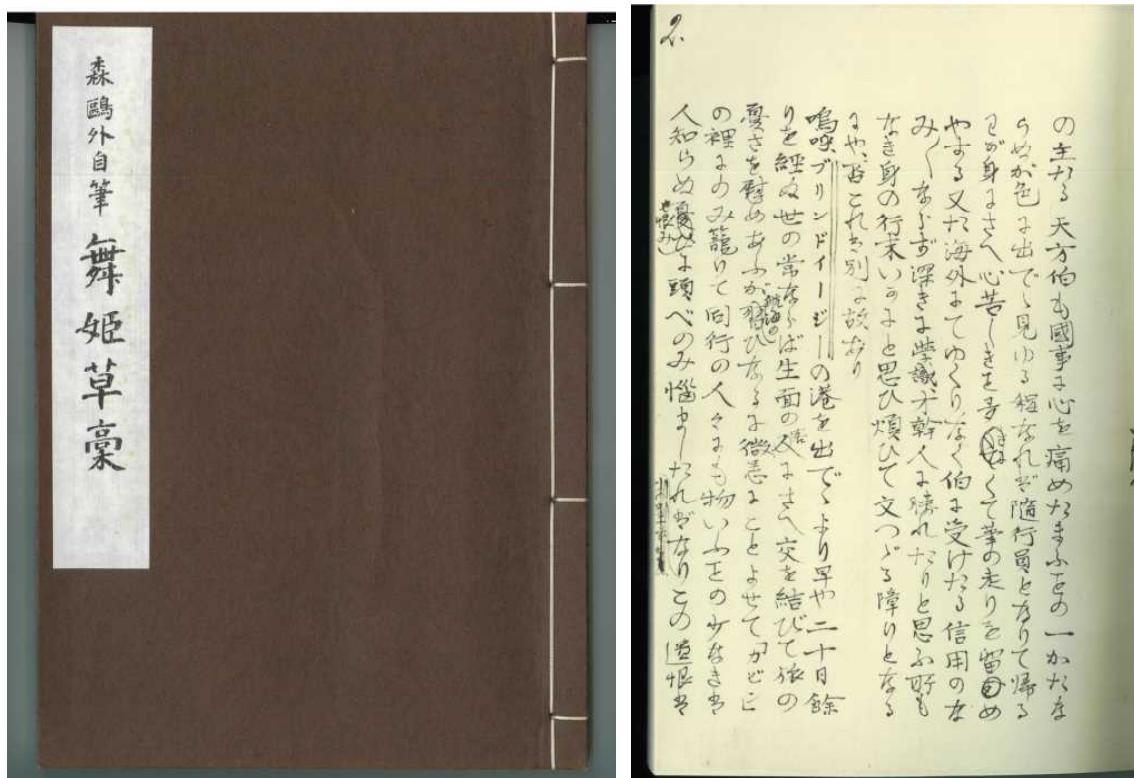 森鷗外自筆 舞姫草稾
2.
の主たる天方伯も國事に心を痛めたまふことの一かたな
らぬが色に出でゝ見ゆる程なれば隨行員となりて帰る
わが身にさへ心苦しきこと多くて筆の走りを留め
やする又た海外にてゆくりなく伯に受けたる信用のな
み〳〵ならず深きに学識、才幹人に勝れたりと思ふ所も
なき身の行末いかにと思ひ煩ひて文つゞる障りとなる
にや、否これには別に故あり
嗚呼、ブリンドイージーの港を出でゝより早や二十日餘
りを経ぬ世の常ならば生面の客にさへ交を結びて旅の
憂さを慰めあふが航海の習ひなるに微恙にことよせてカビン
の裡にのみ籠りて同行の人々にも物いふことの少なきは
人知らぬ恨みに頭べのみ惱ましたればなりこの遺恨は